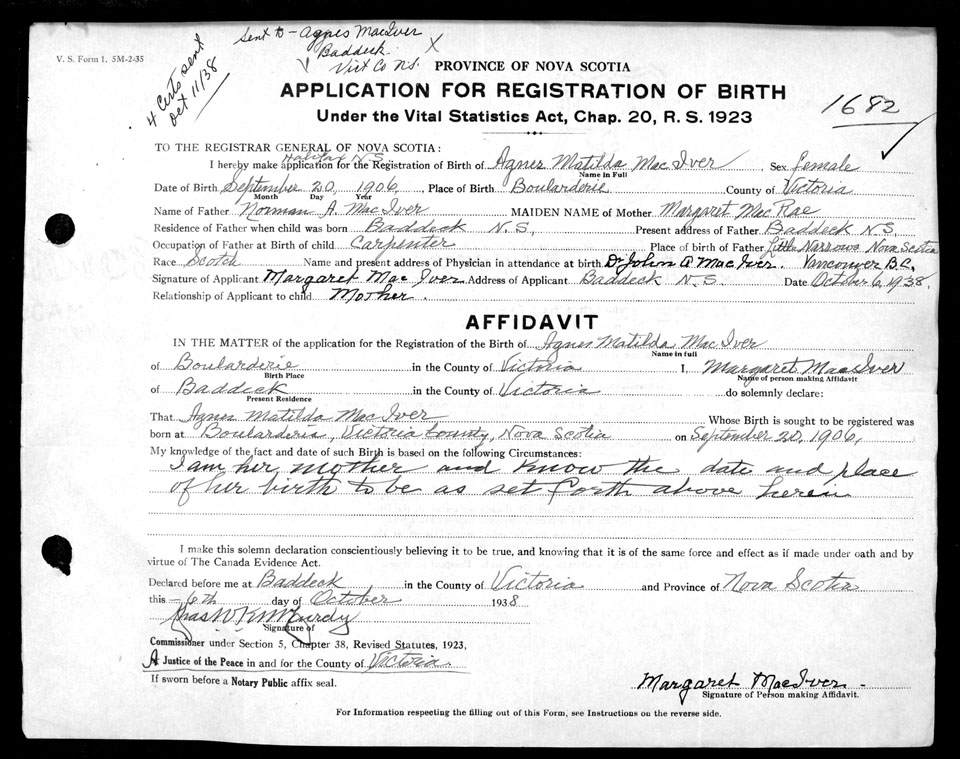 V. S. Form 1. 5M-2-35
Sent to - Agnes MacIver
Baddeck
Vict Co N.S.
X
4 Certs sent
Oct 11/38
PROVINCE OF NOVA SCOTIA
APPLICATION FOR REGISTRATION OF BIRTH
Under the Vital Statistics Act, Chap. 20, R. S. 1923
1682
TO THE REGISTRAR GENERAL OF NOVA SCOTIA:
Halifax N.S.
I hereby make application for the Registration of Birth of Agnes Matilda MacIver Sex female
Name in Full
Date of Birth September 20, 1906, Place of Birth Boularderie County of Victoria
Month Day Year
Name of Father Norman A. MacIver MAIDEN NAME of Mother Margaret MacRae
Residence of Father when child was born Baddeck N.S., Present address of Father Baddeck N.S.
Occupation of Father at Birth of child Carpenter Place of birth of Father Little Narrows Nova Scotia
Race Scotch Name and present address of Physician in attendance at birth Dr John A MacIver. Vancouver B.C.
Signature of Applicant Margaret MacIver Address of Applicant Baddeck N.S. Date October 6, 1938.
Relationship of Applicant to child Mother.
AFFIDAVIT
IN THE MATTER of the application for the Registration of the Birth of Agnes Matilda MacIver
Name in full
of Boularderie in the County of Victoria I, Margaret MacIver
Birth Place Name of person making Affidavit
of Baddeck in the County of Victoria do solemnly declare:
Present Residence
That Agnes Matilda MacIver Whose Birth is sought to be registered was
born at Boularderie, Victoria County, Nova Scotia on September 20, 1906,
My knowledge of the fact and date of such Birth is based on the following Circumstances:
I am her mother and know the date and place
of her birth to be as set forth above herein
I make this solemn declaration conscientiously believing it to be true, and knowing that it is of the same force and effect as if made under oath and by
virtue of The Canada Evidence Act.
Declared before me at Baddeck in the County of Victoria and Province of Nova Scotia
this - 6th day of October 1938
Signature of
Commissioner under Section 5, Chapter 38, Revised Statutes, 1923,
A Justice of the Peace in and for the County of Victoria.
If sworn before a Notary Public affix seal.
Margaret MacIver.
Signature of Person making Affidavit.
For Information respecting the filling out of this Form, see Instructions on the reverse side.